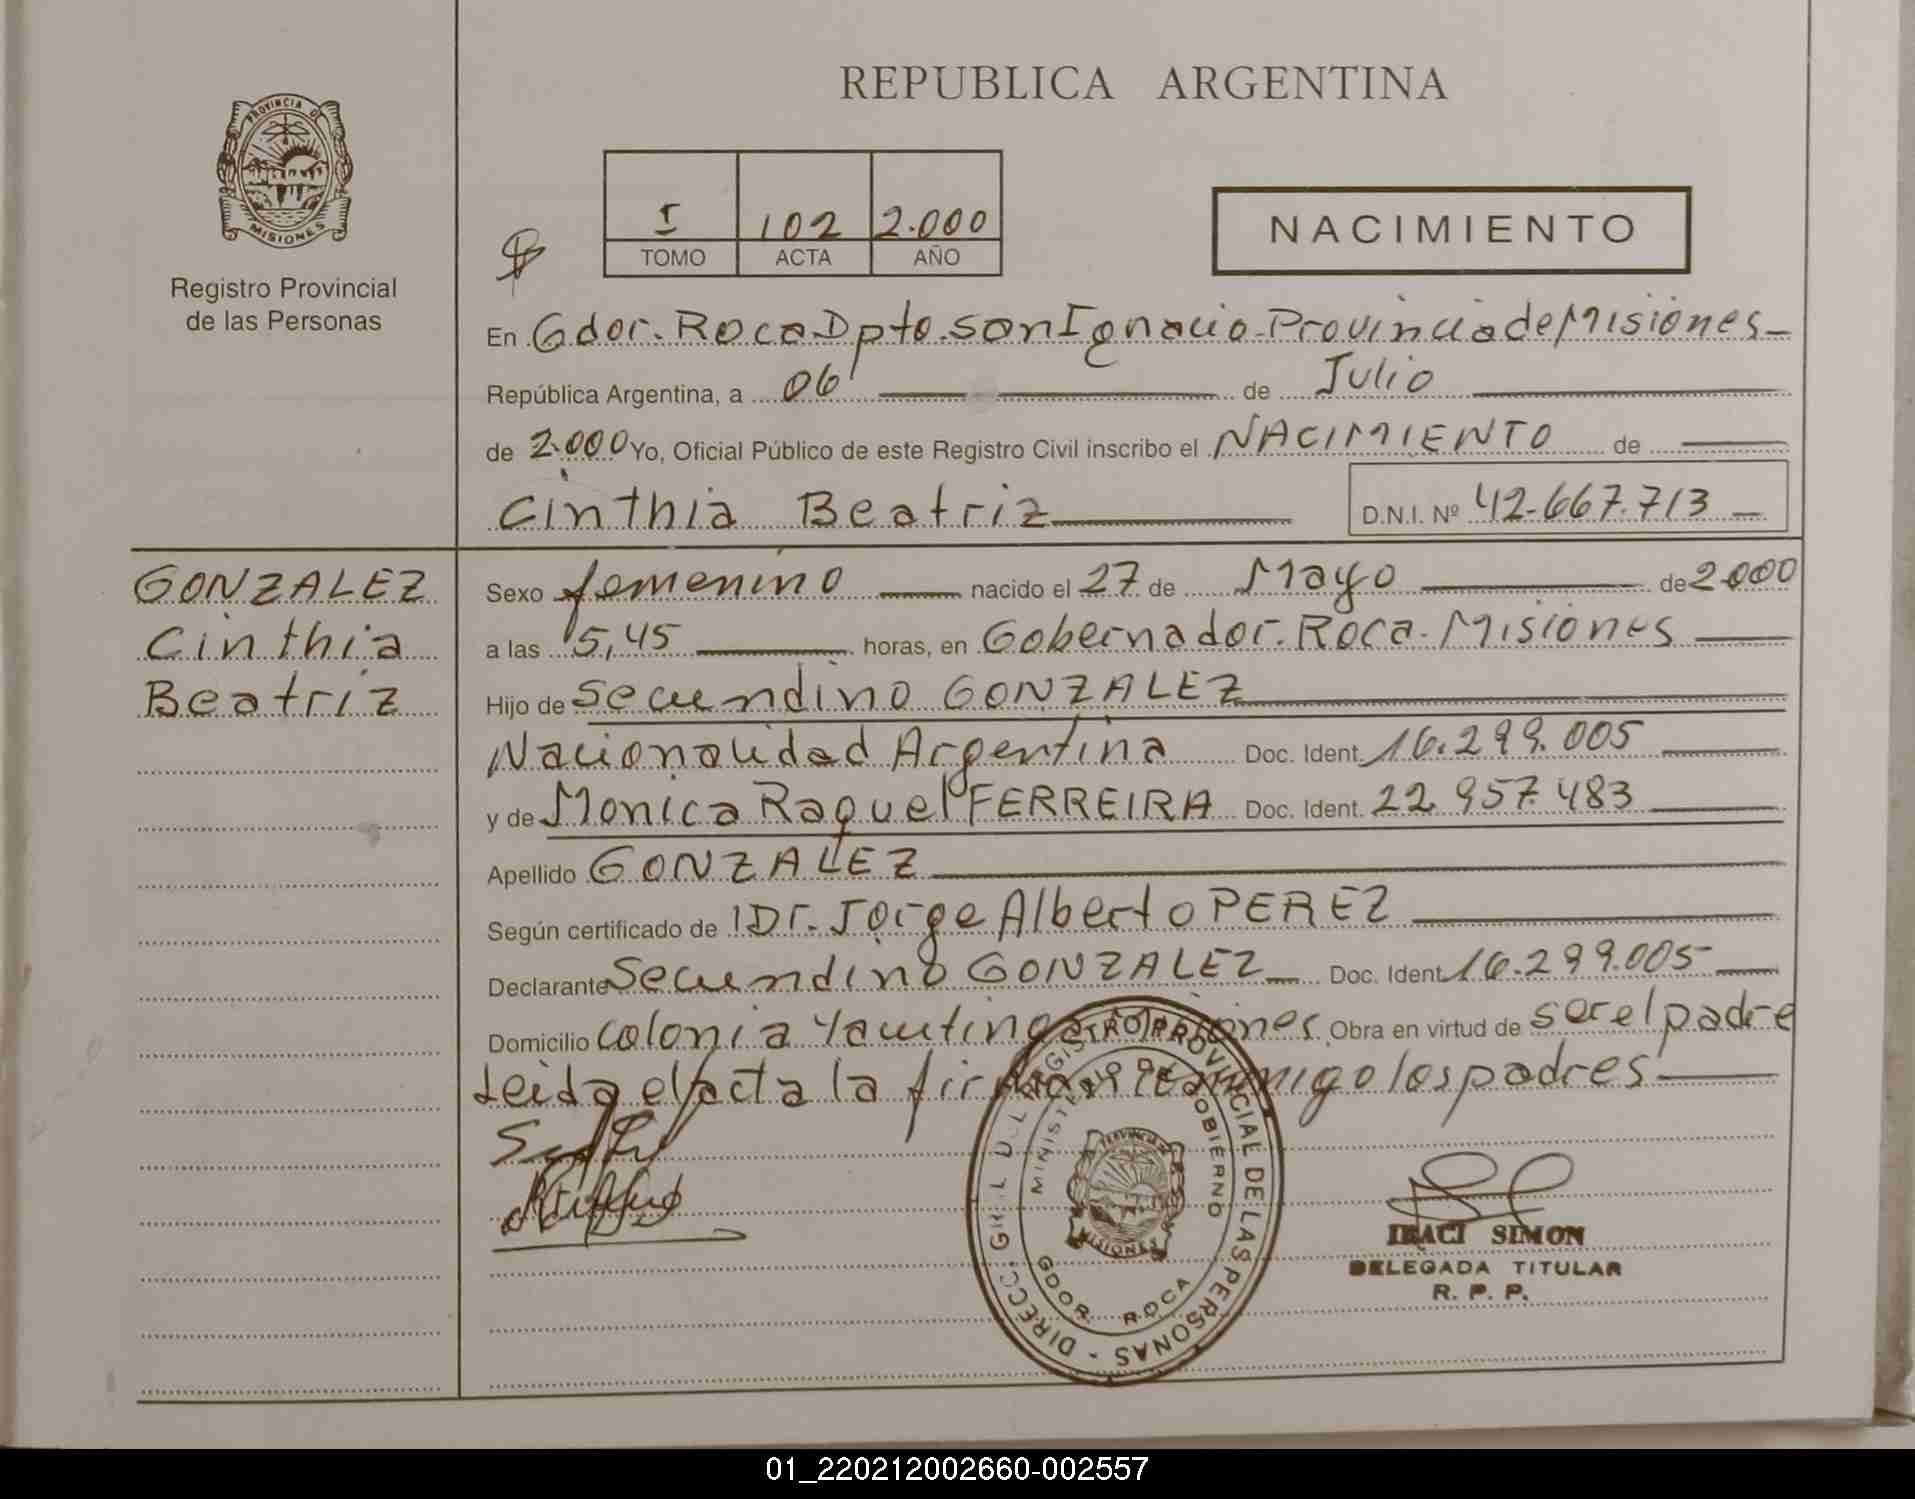 REPUBLICA ARGENTINA
PROVINCIA DE
MISIONES
Registro Provincial
de las Personas
I 102 2.000
TOMO ACTA AÑO
NACIMIENTO
En Gdor. Roca Dpto. San Ignacio - Provincia de Misiones
República Argentina, a 06 de Julio
de 2.000 Yo, Oficial Público de este Registro Civil inscribo el NACIMIENTO de
Cinthia Beatriz D.N.I. Nº 42.667.713
GONZALEZ
Cinthia
Beatriz
Sexo femenino nacido el 27 de Mayo de 2000
a las 5,45 horas, en Gobernador. Roca. Misiones
Hijo de Secundino GONZALEZ
Nacionalidad Argentina Doc. Ident. 16.299.005
y de Monica Raquel FERREIRA Doc. Ident. 22.957.483
Apellido GONZALEZ
Según certificado de Dr. Jorge Alberto PEREZ
Declarante Secundino GONZALEZ Doc. Ident. 16.299.005
Domicilio Colonia Obra en virtud de ser el padre
Leida el acta la firman conmigo los padres
DIRECC. GRAL DEL REGISTRO PROVINCIAL DE LAS PERSONAS -
MINISTERIO DE GOBIERNO
MISIONES
GDOR. ROCA
IRACI SIMON
DELEGADA TITULAR
R. P. P.
01_220212002660-002557